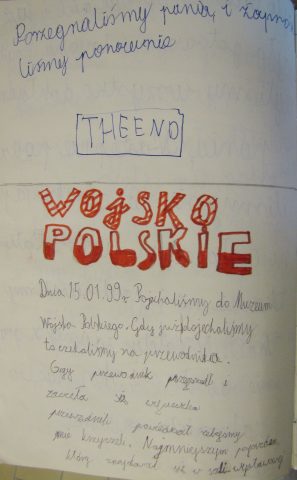 Pożegnaliśmy panią, i
liśmy ponownie
THE END
WOJSKO
POLSKIE
Dnia 15.01.99r Pojechaliśmy do Muzeum
Wojska Polskiego. Gdy już dojechaliśmy
to czekaliśmy na przewodnika.
Gdy przewodnik przyszedł i
zaczeła się wycieczka
przewodnik powiedział żebyśmy
nie krzyczeli. Najmniejszym pojazdem
który znajdował się w sali wystawowej